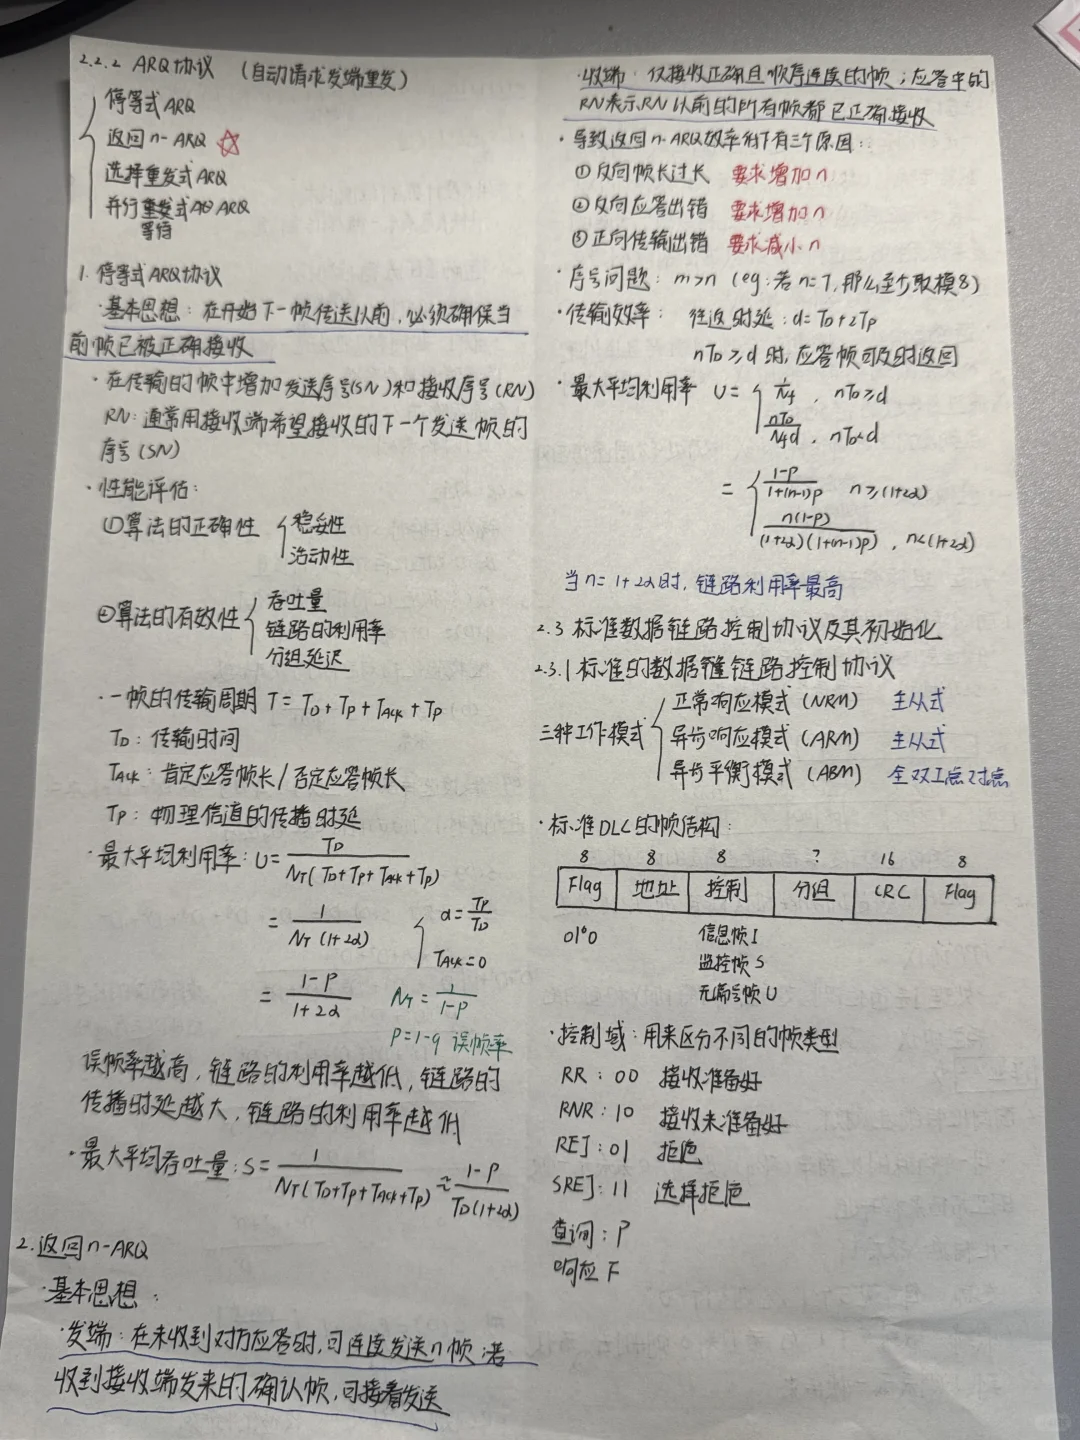 2.2.2 ARQ协议 (自动请求发端重发)
停等式ARQ
返回n-ARQ ☆
选择重发式ARQ
并行重发式ARQ
等待
1. 停等式ARQ协议
·基本思想：在开始下一帧传送以前，必须确保当
前帧已被正确接收
·在传输的帧中增加发送序号(SN)和接收序号(RN)
RN：通常用接收端希望接收的下一个发送帧的
序号(SN)
·性能评估：
①算法的正确性 { 稳妥性
活动性
②算法的有效性 { 吞吐量
链路的利用率
分组延迟
·一帧的传输周期 T = TD + TP + TACK + TP
TD：传输时间
TACK：肯定应答帧长/否定应答帧长
TP：物理信道的传播时延
·最大平均利用率：U = TD / NT(TD+TP+TACK+TP)
= 1 / NT(1+2α) { α = TP/TD
TACK=0
= 1-P / 1+2α NT = 1/1-P
P=1-q 误帧率
误帧率越高，链路的利用率越低，链路的
传播时延越大，链路的利用率越低
·最大平均吞吐量：S = 1 / NT(TD+TP+TACK+TP) ≈ 1-P / TD(1+2α)
2. 返回n-ARQ
·基本思想：
·发端：在未收到对方应答时，可连续发送n帧；若
收到接收端发来的确认帧，可接着发送
·收端：仅接收正确且顺序连续的帧；应答中的
RN表示RN以前的所有帧都已正确接收
·导致返回n-ARQ效率下有三个原因：
①反向帧长过长 要求增加n
②反向应答出错 要求增加n
③正向传输出错 要求减小n
·序号问题：m>n (eg：若n=7，那么至少取模8)
·传输效率： 往返时延：d=TD+2TP
nTD≥d时，应答帧可及时返回
·最大平均利用率 U = { 1/Nf ，nTD≥d
nTD/Nfd ，nTD<d
= { 1-P / 1+(n-1)P n≥(1+2α)
n(1-P) / (1+2α)(1+(n-1)P) ，n<(1+2α)
当n=1+2α时，链路利用率最高
2.3 标准数据链路控制协议及其初始化
2.3.1 标准的数据链路控制协议
三种工作模式 { 正常响应模式 (NRM) 主从式
异步响应模式 (ARM) 主从式
异步平衡模式 (ABM) 全双工点对点
·标准DLC的帧结构：
8 8 8 ? 16 8
Flag 地址 控制 分组 CRC Flag
01⁶0 信息帧 I
监控帧 S
无编号帧 U
·控制域：用来区分不同的帧类型
RR：00 接收准备好
RNR：10 接收未准备好
REJ：01 拒绝
SREJ：11 选择拒绝
查询：P
响应 F